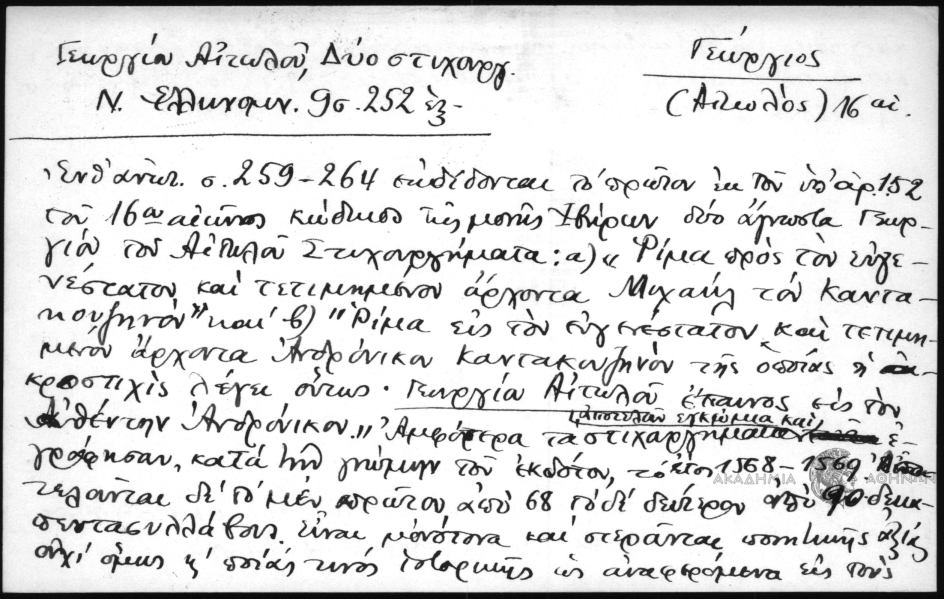 Γεωργίου Αἰτωλοῦ, Δύο στιχουργ.
Ν. Ἑλληνομν. 9 σ. 252 ἑξ.
Γεώργιος
(Αἰτωλὸς) 16 αἰ.
Ἐνθ' ἀνωτ. σ. 259-264 ἐκδίδονται τὸ πρῶτον ἐκ τοῦ ὑπ' ἀρ. 152
τοῦ 16ου αἰῶνος κώδικος τῆς μονῆς Ἰβήρων δύο ἄγνωστα Γεωρ-
γίου τοῦ Αἰτωλοῦ Στιχουργήματα: α) « Ρίμα πρὸς τὸν εὐγε-
νέστατον καὶ τετιμημένον ἄρχοντα Μιχαὴλ τὸν Καντα-
κουζηνόν" καὶ β) "Ρίμα εἰς τὸν εὐγενέστατον καὶ τετιμη-
μένον ἄρχοντα Ἀνδρόνικον Καντακουζηνὸν τῆς ὁποίας ἡ ἀ-
κροστιχὶς λέγει οὕτως · Γεωργίου Αἰτωλοῦ ἔπαινος εἰς τὸν
Αὐθέντην Ἀνδρόνικον." Ἀμφότερα τὰ στιχουργήματα ἀποτελοῦν ἐγκώμια καὶ ἐ-
γράφησαν, κατὰ τὴν γνώμην τοῦ ἐκδότου, τὸ ἔτος 1568-1569. Ἀποτε-
λοῦνται δὲ τὸ μὲν πρῶτον ἀπὸ 68 τὸ δὲ δεύτερον ἀπὸ 90 δεκα-
πεντασυλλάβους. Εἶναι μονότονα καὶ στεροῦνται ποιητικῆς ἀξίας
οὐχὶ ὅμως καὶ ποιάς τινος ἱστορικῆς ὡς ἀναφερόμενα εἰς τοὺς
ΑΚΑΔΗΜΙΑ ΑΘΗΝΩΝ